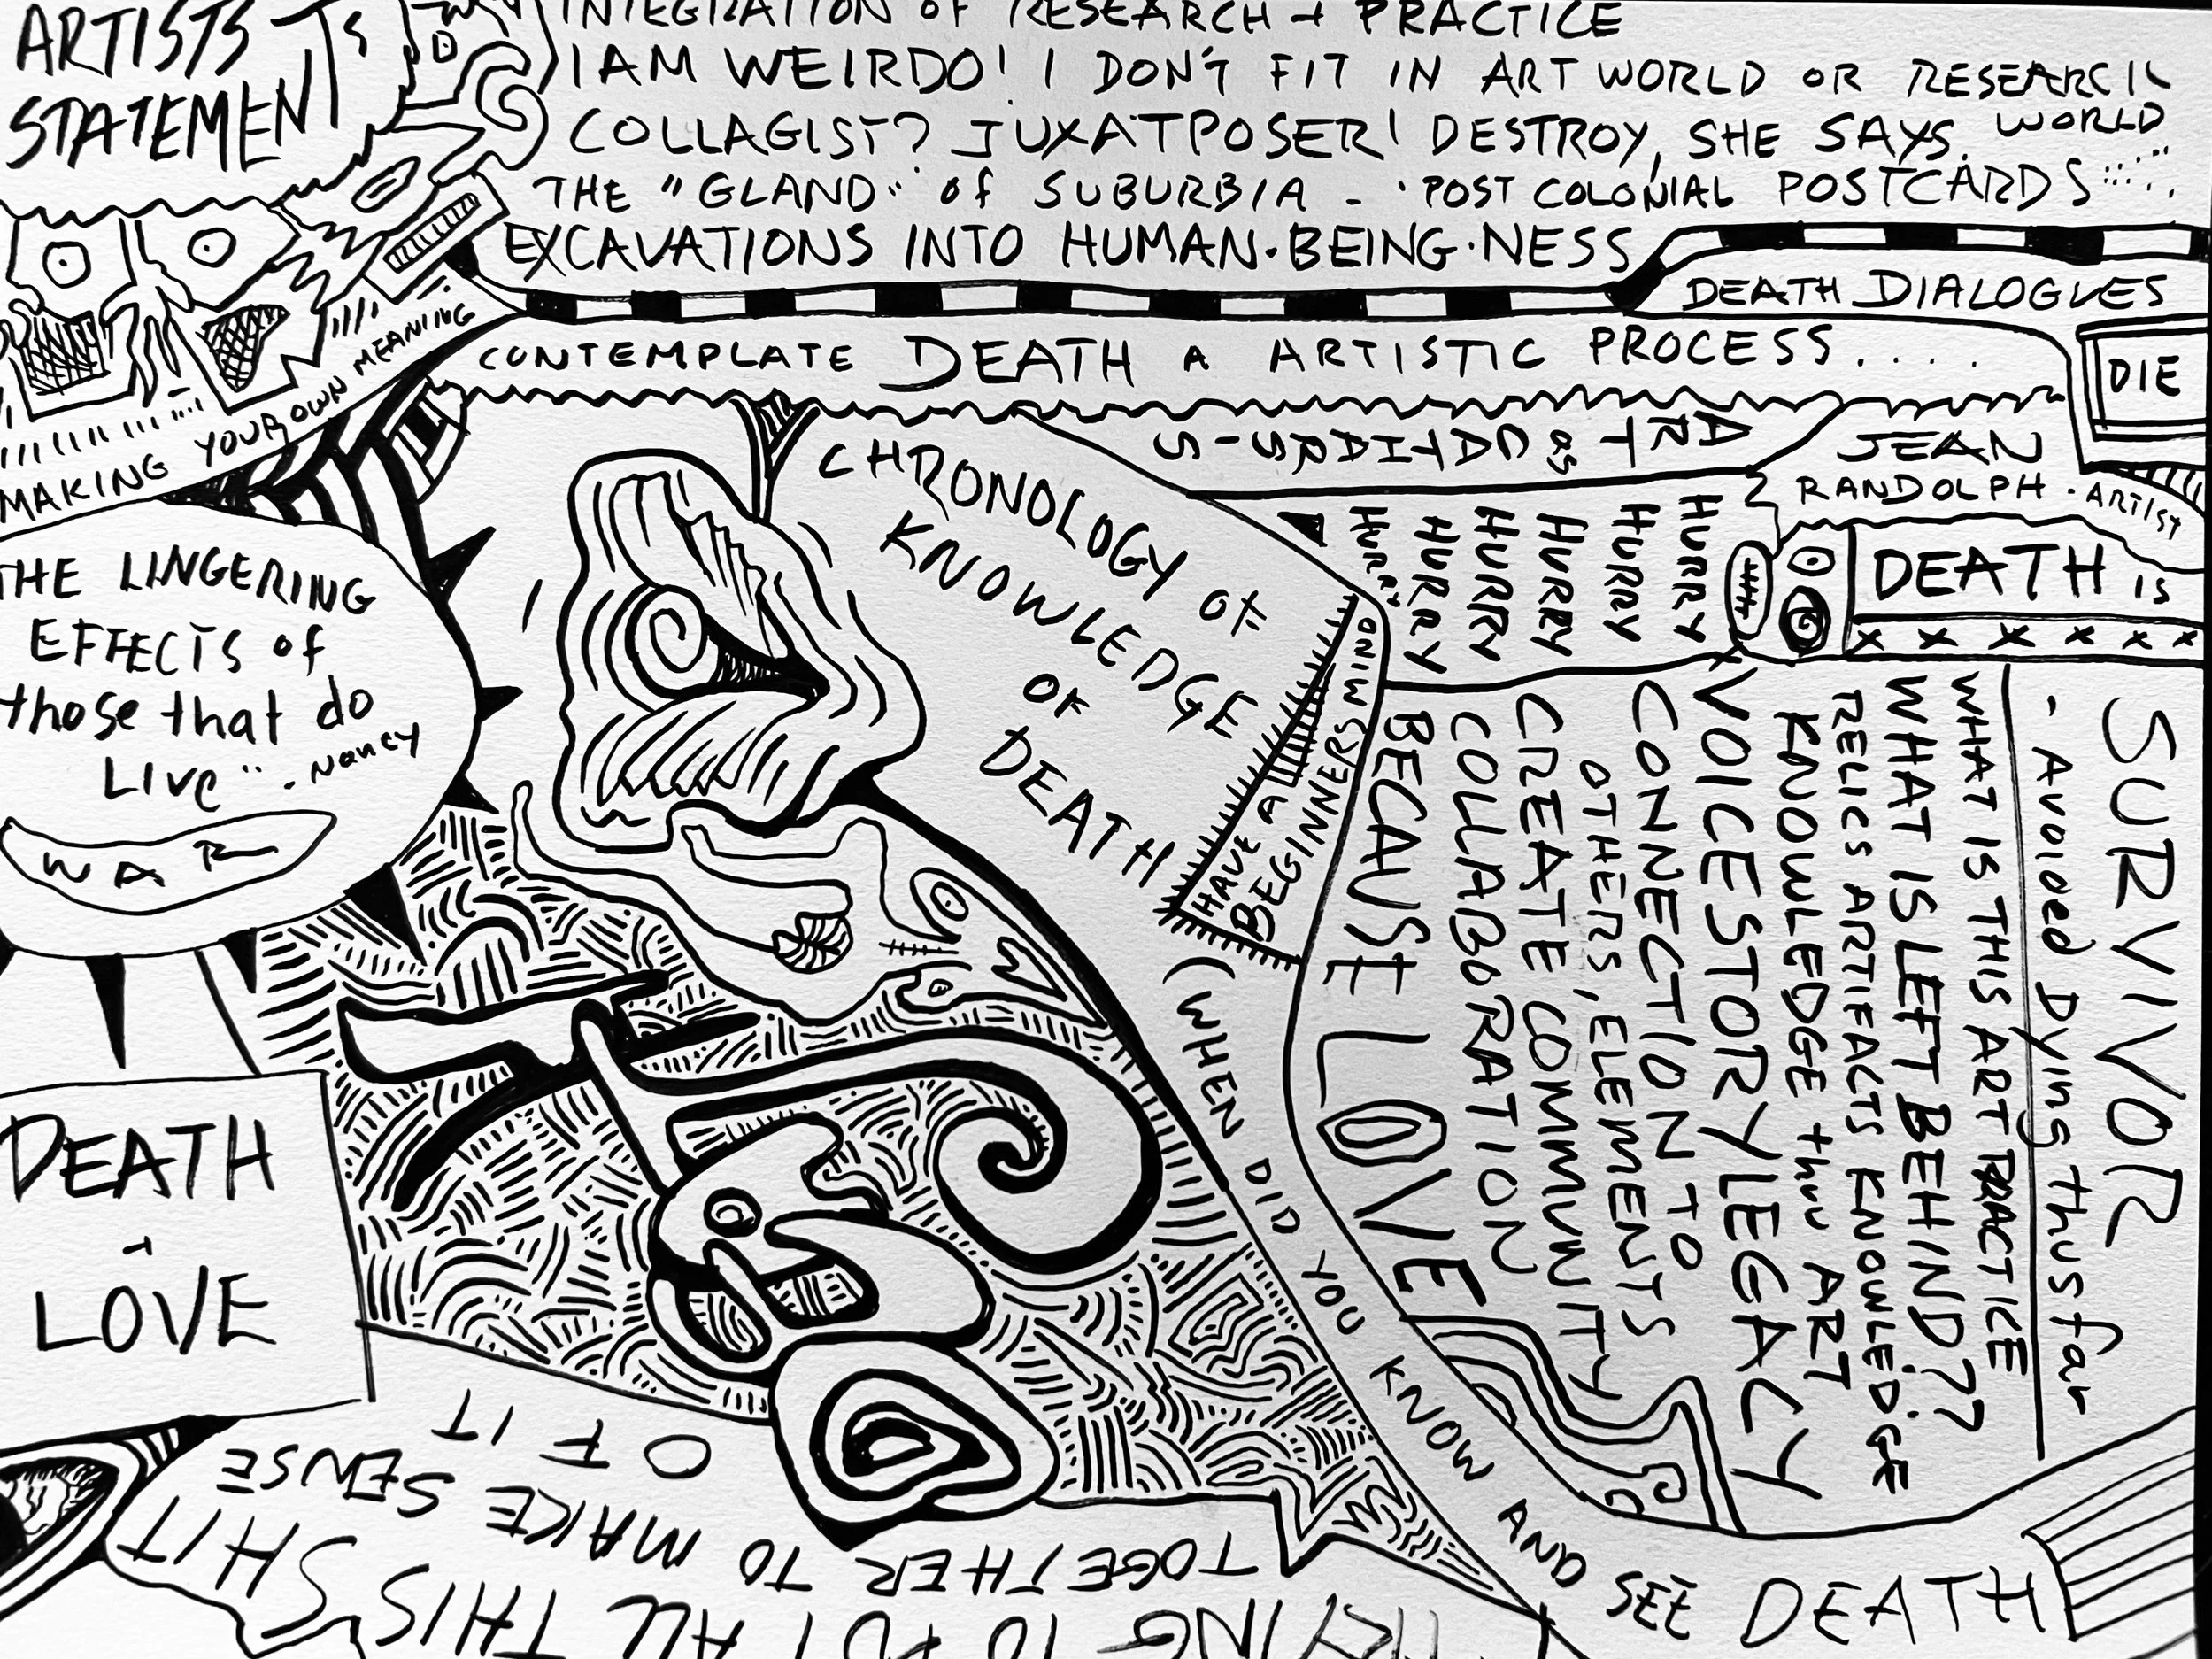 ARTISTS
STATEMENTS
INTEGRATION OF RESEARCH + PRACTICE
I AM WEIRDO! I DON'T FIT IN ART WORLD OR RESEARCH
WORLD
COLLAGIST? JUXATPOSER! DESTROY, SHE SAYS.
THE "GLAND" of SUBURBIA - POST COLONIAL POSTCARDS
EXCAVATIONS INTO HUMAN·BEING·NESS
DEATH DIALOGUES
CONTEMPLATE DEATH A ARTISTIC PROCESS....
DIE
MAKING YOUR OWN MEANING
THE LINGERING
EFFECTS of
those that do
Live" - Nancy
WAR
CHRONOLOGY OF
KNOWLEDGE
OF
DEATH
(WHEN DID YOU KNOW AND SEE DEATH
ART as
JEAN
RANDOLPH - ARTIST
DEATH IS
x x x x x x
HURRY
HURRY
HURRY
HURRY
HURRY
HURRY
HAVE A
BEGINNERS MIND
SURVIVOR
- Avoided Dying thus far
WHAT IS THIS ART PRACTICE
WHAT IS LEFT BEHIND??
RELICS ARTIFACTS KNOWLEDGE
KNOWLEDGE thru ART
VOICE STORY LEGACY
CONNECTION TO
OTHERS, ELEMENTS
CREATE COMMUNITY
COLLABORATION
BECAUSE LOVE
DEATH
+
LOVE
TRYING TO PUT ALL THIS SHIT
TOGETHER TO MAKE SENSE
OF IT